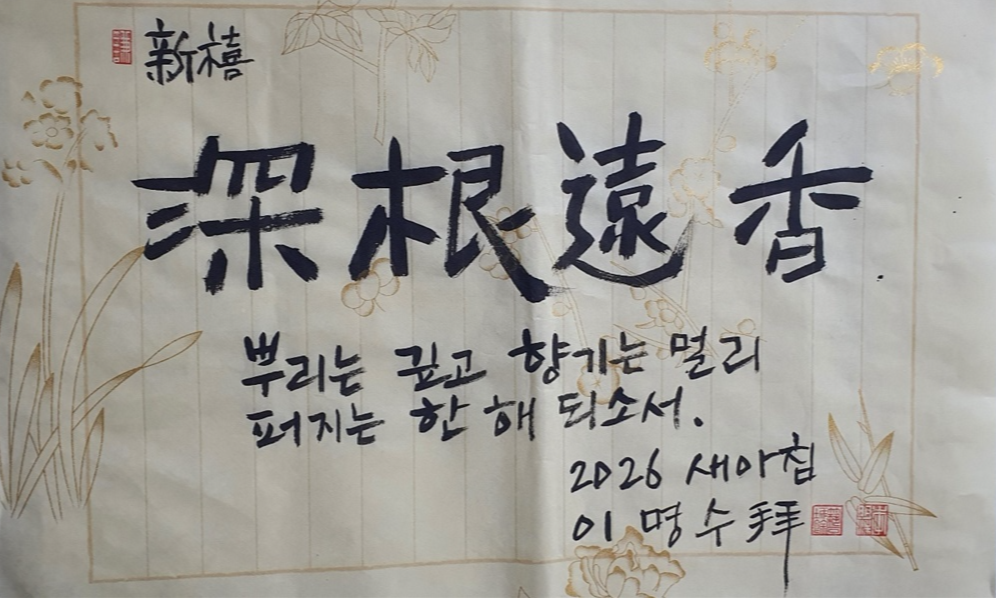 新禧
深根遠香
뿌리는 깊고 향기는 멀리
퍼지는 한 해 되소서.
2026 새아침
이명수 拜